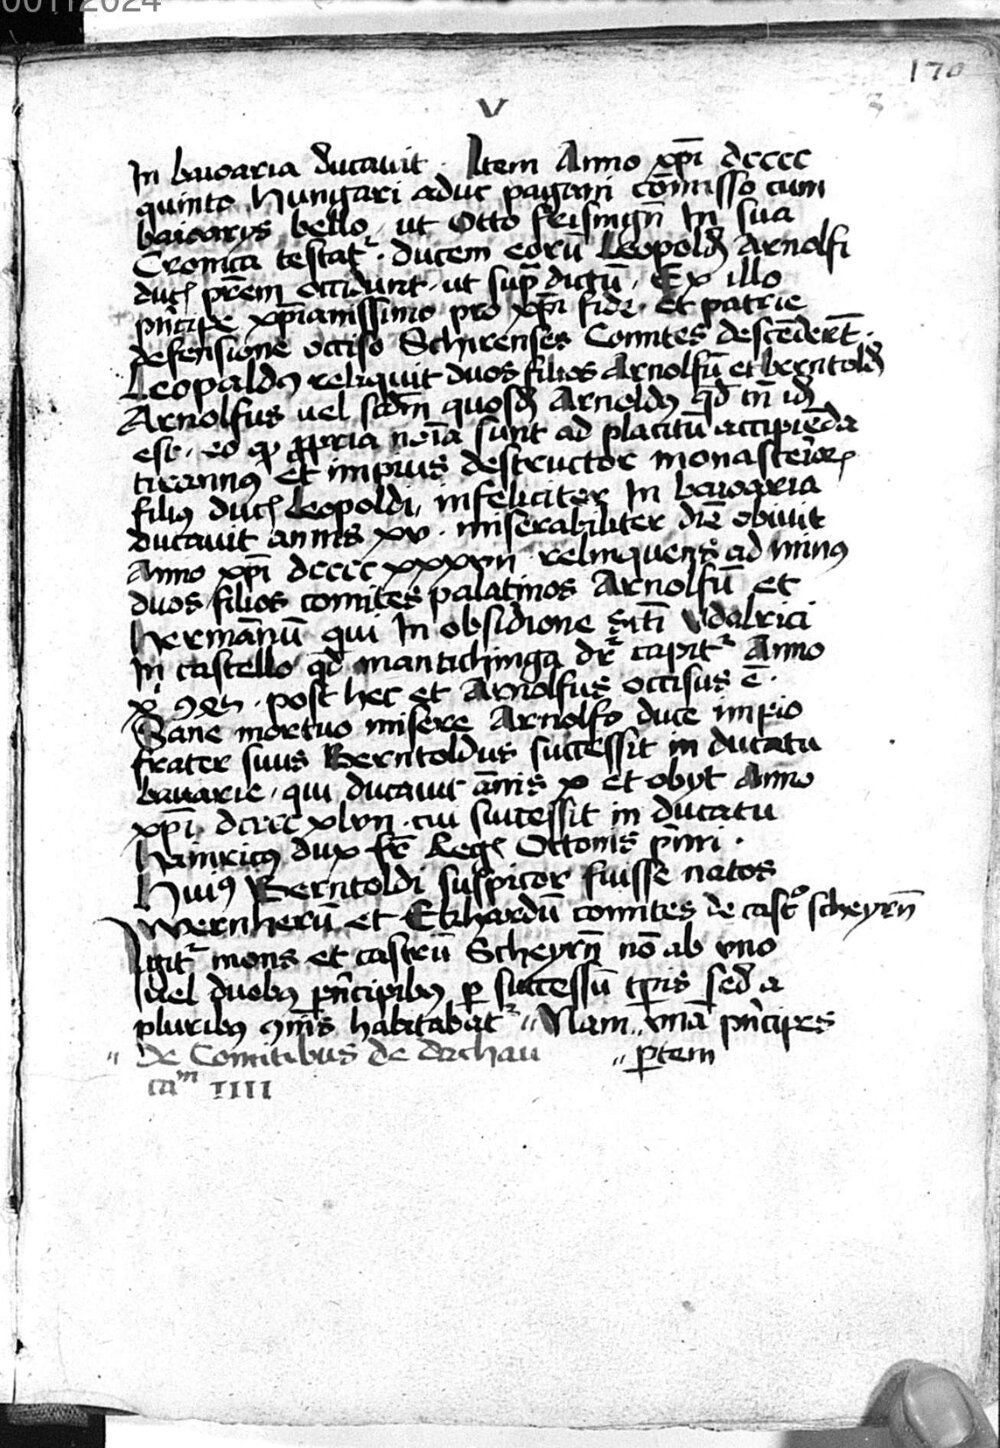 00112024
170
V
In bauoaria ducauit. Item Anno xp̄i dcccc
quinto hungari aduc pagani cōmisso cum
baioarys bello, ut Otto frisingn̄ In sua
Cronica testat᷑. ducem eorū Leopold᷒ Arnolfi
duc᷒ pr̄em occidunt. ut sup̄ dictū. Ex illo
pn̄cipe xp̄ianissimo pro xp̄i fide et patrie
defensione occiso Schirenses Comites descēdert̄.
Leopaldꝰ reliquit duos filios Arnolfū et berntold᷒
Arnolfus uel scd̄m quosd᷒ Arnoldꝰ qd̄ tn̄ id᷒
est. eo ꝙ ꝓpria noīa sunt ad placitū accipiēda
tirannꝰ et impius destructor monasterior᷒
filiꝰ duc᷒ Leopoldi, infeliciter In bauoaria
ducauit annis xv. miserabiliter diē obiuit
Anno xp̄i dcccc xxxvii relinquens ad minꝰ
duos filios comites palatinos Arnolfū et
Hermānū qui In obsidione sc̄ti Vdalrici
In castello qd̄ mantichinga dr̄ capit᷑ Anno
post hec et Arnolfus occisus ē.
Sane mortuo misere Arnolfo duce impio
frater suus Berntoldus successit in ducatu
bauarie, qui ducauit ānis x et obyt Anno
xp̄i dcccc xlvii. cui successit in ducatu
Hainricꝰ dux fr̄ Reg᷒ Ottonis p̄mi.
Huiꝰ Berntoldi suspicor fuisse natos
Wernherū et Ekhardū comites de castº scheyrn̄
Igit᷑ mons et castrū Scheyrn̄ nō ab vno
uel duobꝰ pn̄cipibꝰ ꝑ successū tꝑis sed a
pluribꝰ ꝯīs habitabat᷑ " Nam " vnā pn̄cipes
" De Comitibus de dachau " ꝑtem
caᵐ IIII